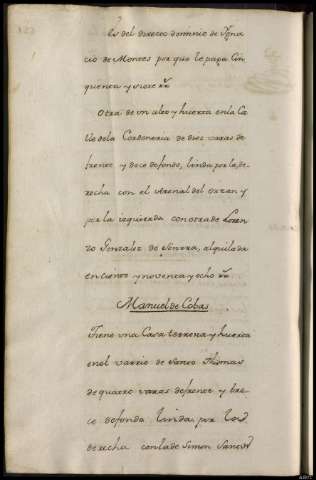 Es del directo dominio de Ygna
cio de Montes por que le paga cin
quenta y siete rr.
Otra de un alto y huerta en la Ca
lle de la Cordoneria de diez varas de
frente y doce de fondo, linda por la de
recha con el Arenal del Orzan y
por la izquierda con otra de Loren
zo Gonzalez de Senrra, alquilada
en ciento y noventa y ocho rr.
Manuel de Cobas
Tiene una Casa terrena y huerta
en el varrio de Santo Thomas
de quatro varas de frente y tre
ce de fondo linda por la
derecha con la de Simon Sanchz